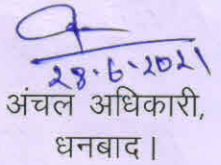 28.6.2021
अंचल अधिकारी,
धनबाद।